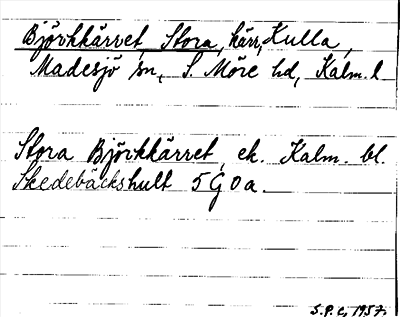 Björkkärret, Stora, kärr, Kulla,
Madesjö sn, S. Möre hd, Kalm. l
Stora Björkkärret, ek. Kalm. bl.
Skedebäckshult 5G0a.
S.P.C. 1957.